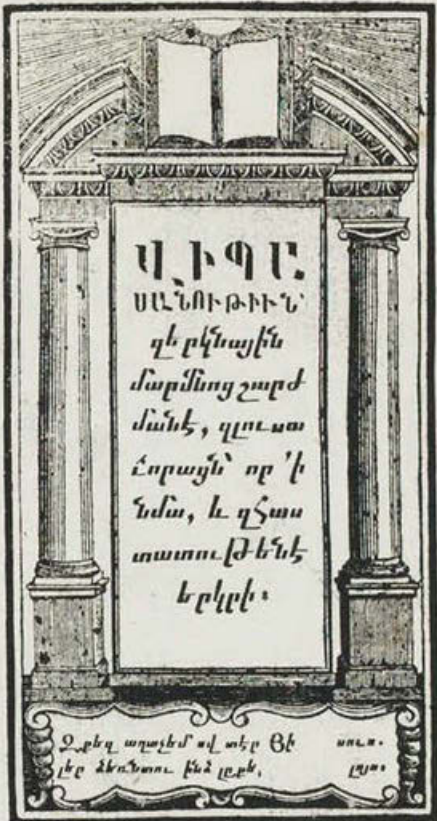 ՎԻՊԱ
ՍԱՆՈՒԹԻՒՆ՝
զերկնային
մարմնոց շարժ
մանէ, զլուսա
ւորացն՝ որ ՚ի
նմա, և զհաս
տատութենէ
երկրի։
Զքեզ աղաչեմ ով տէր Յի սուս.
լեր ձեռնտու ինձ լըքե, լոյս։